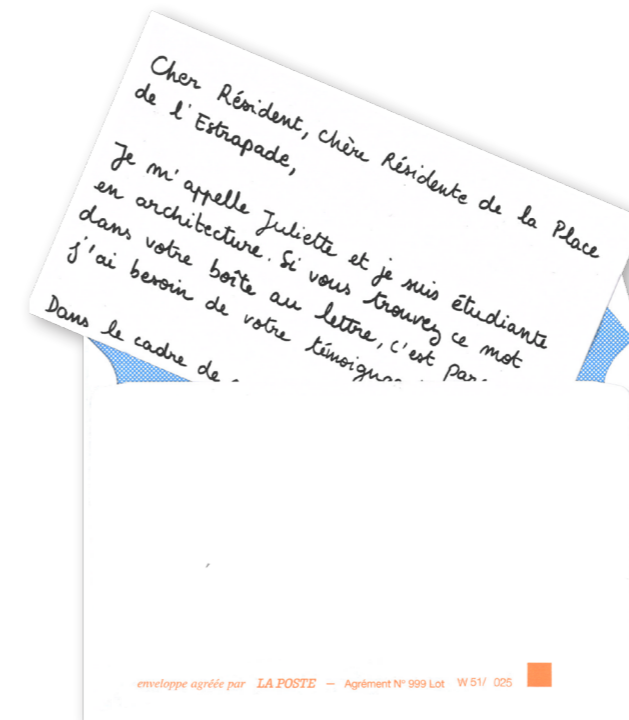 Cher Résident, chère Résidente de la Place
de l'Estrapade,
Je m'appelle Juliette et je suis étudiante
en architecture. Si vous trouvez ce mot
dans votre boîte au lettre, c'est
j'ai besoin de votre
Dans le cadre de
enveloppe agréée par LA POSTE — Agrément N° 999 Lot W 51/ 025